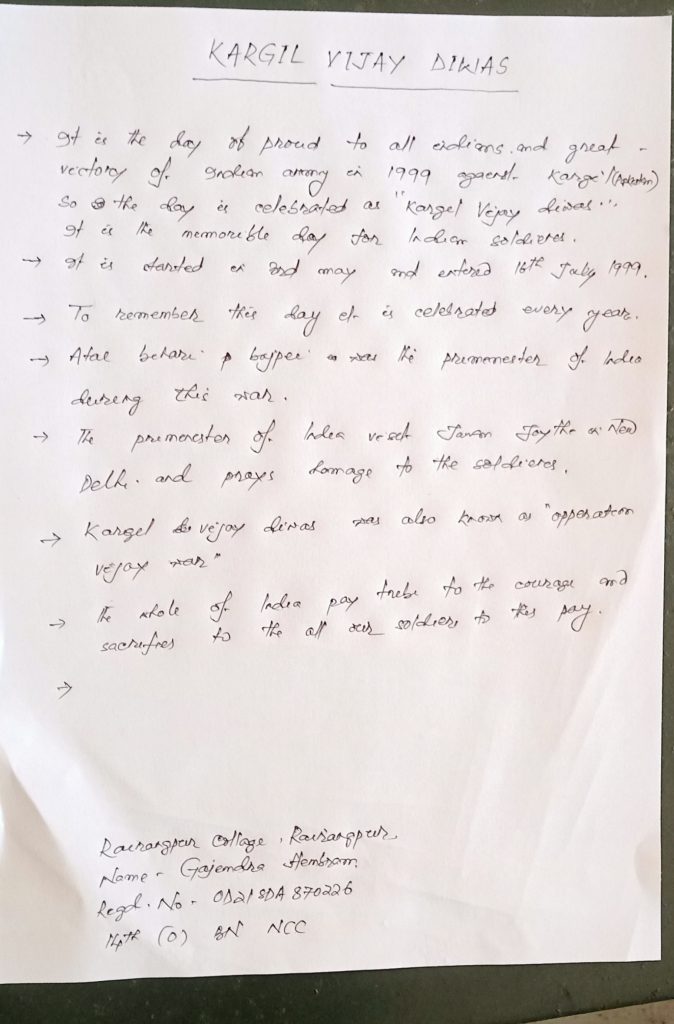 KARGIL VIJAY DIWAS
→ It is the day of proud to all indians and great -
victory of Indian army in 1999 against Kargil (Pakistan)
So the day is celebrated as "Kargil Vijay diwas".
It is the memorible day for Indian soldieres.
→ It is started in 3rd may and entered 16th July 1999.
→ To remember this day it is celebrated every year.
→ Atal behari bajpei was the primeminester of India
during this war.
→ The primeminester of India visit Jawan Joythi in New
Delhi and prays homage to the soldieres.
→ Kargil vijay diwas was also known as "opperation
vijay war"
→ The whole of India pay tribe to the courage and
sacrifies to the all our soldiers to this pay.
→
Rairangpur Collage, Rairangpur
Name - Gajendra Hembram
Regd. No - OD21SDA870226
14th (O) BN NCC